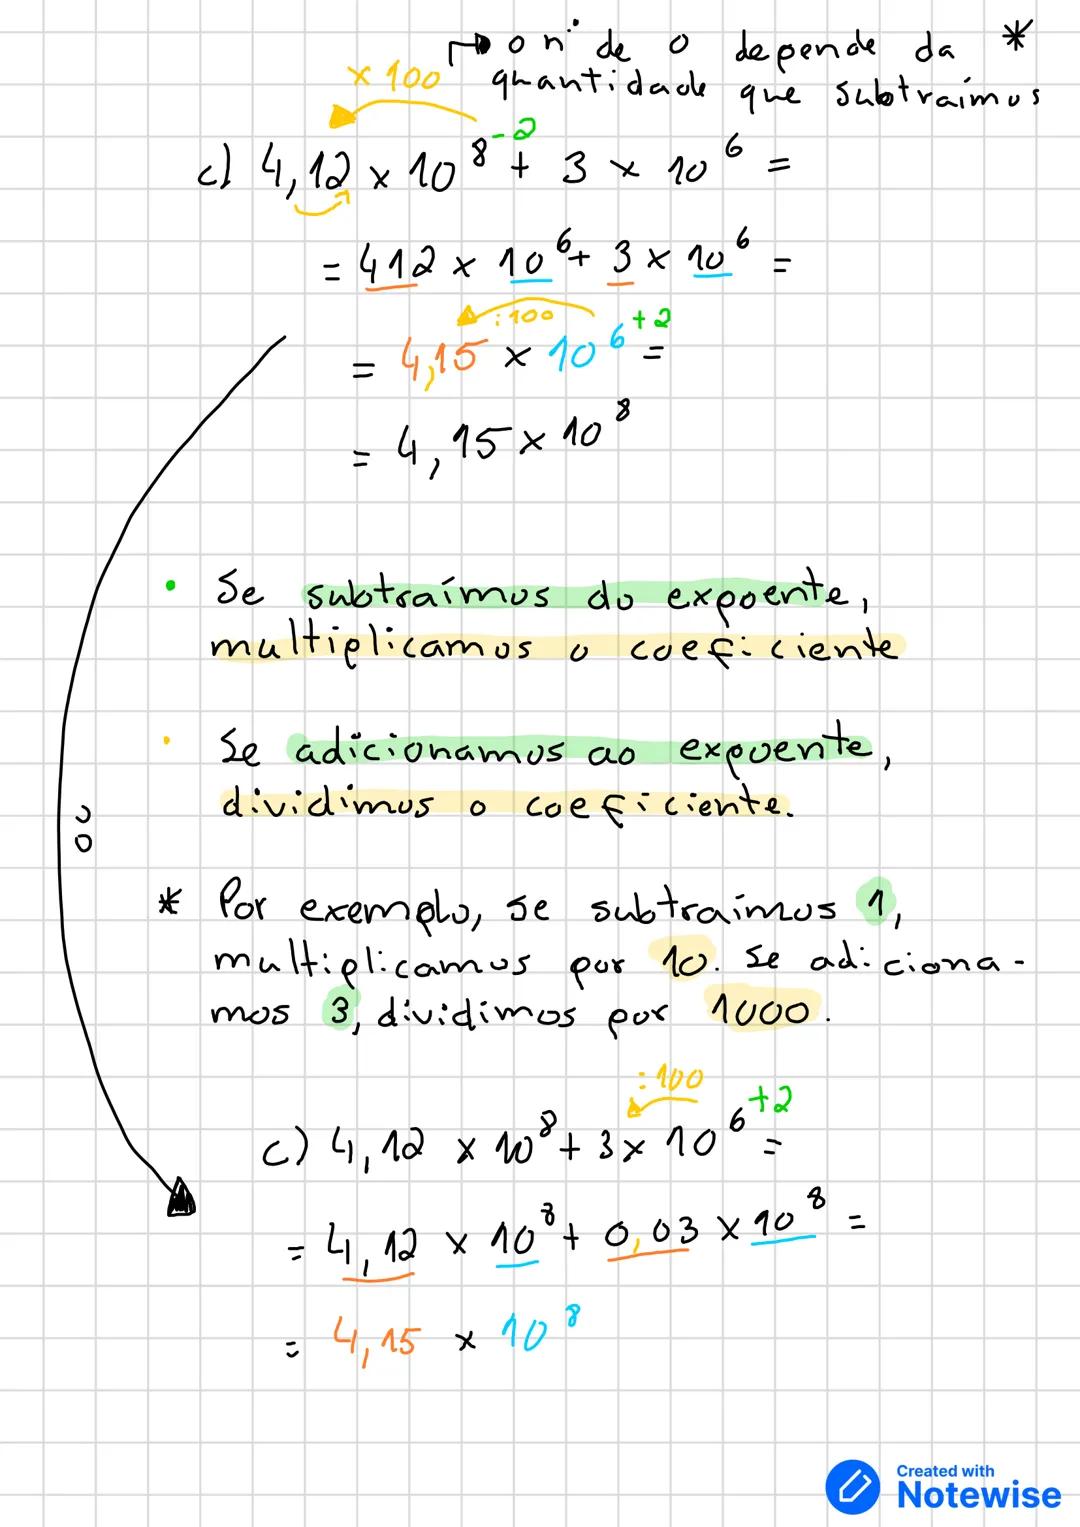 → o nº de 0 depende da *
× 100 quantidade que subtraímos
c) 4,12 × 10⁸⁻² + 3 × 10⁶ =
= 412 × 10⁶ + 3 × 10⁶ =
: 100
= 4,15 × 10⁶⁺² =
= 4,15 × 10⁸
• Se subtraímos do expoente,
multiplicamos o coeficiente
• Se adicionamos ao expoente,
dividimos o coeficiente.
ou
* Por exemplo, se subtraímos 1,
multiplicamos por 10. Se adiciona-
mos 3, dividimos por 1000.
: 100
c) 4,12 × 10⁸ + 3 × 10⁶⁺² =
= 4,12 × 10⁸ + 0,03 × 10⁸ =
= 4,15 × 10⁸
Created with
Notewise